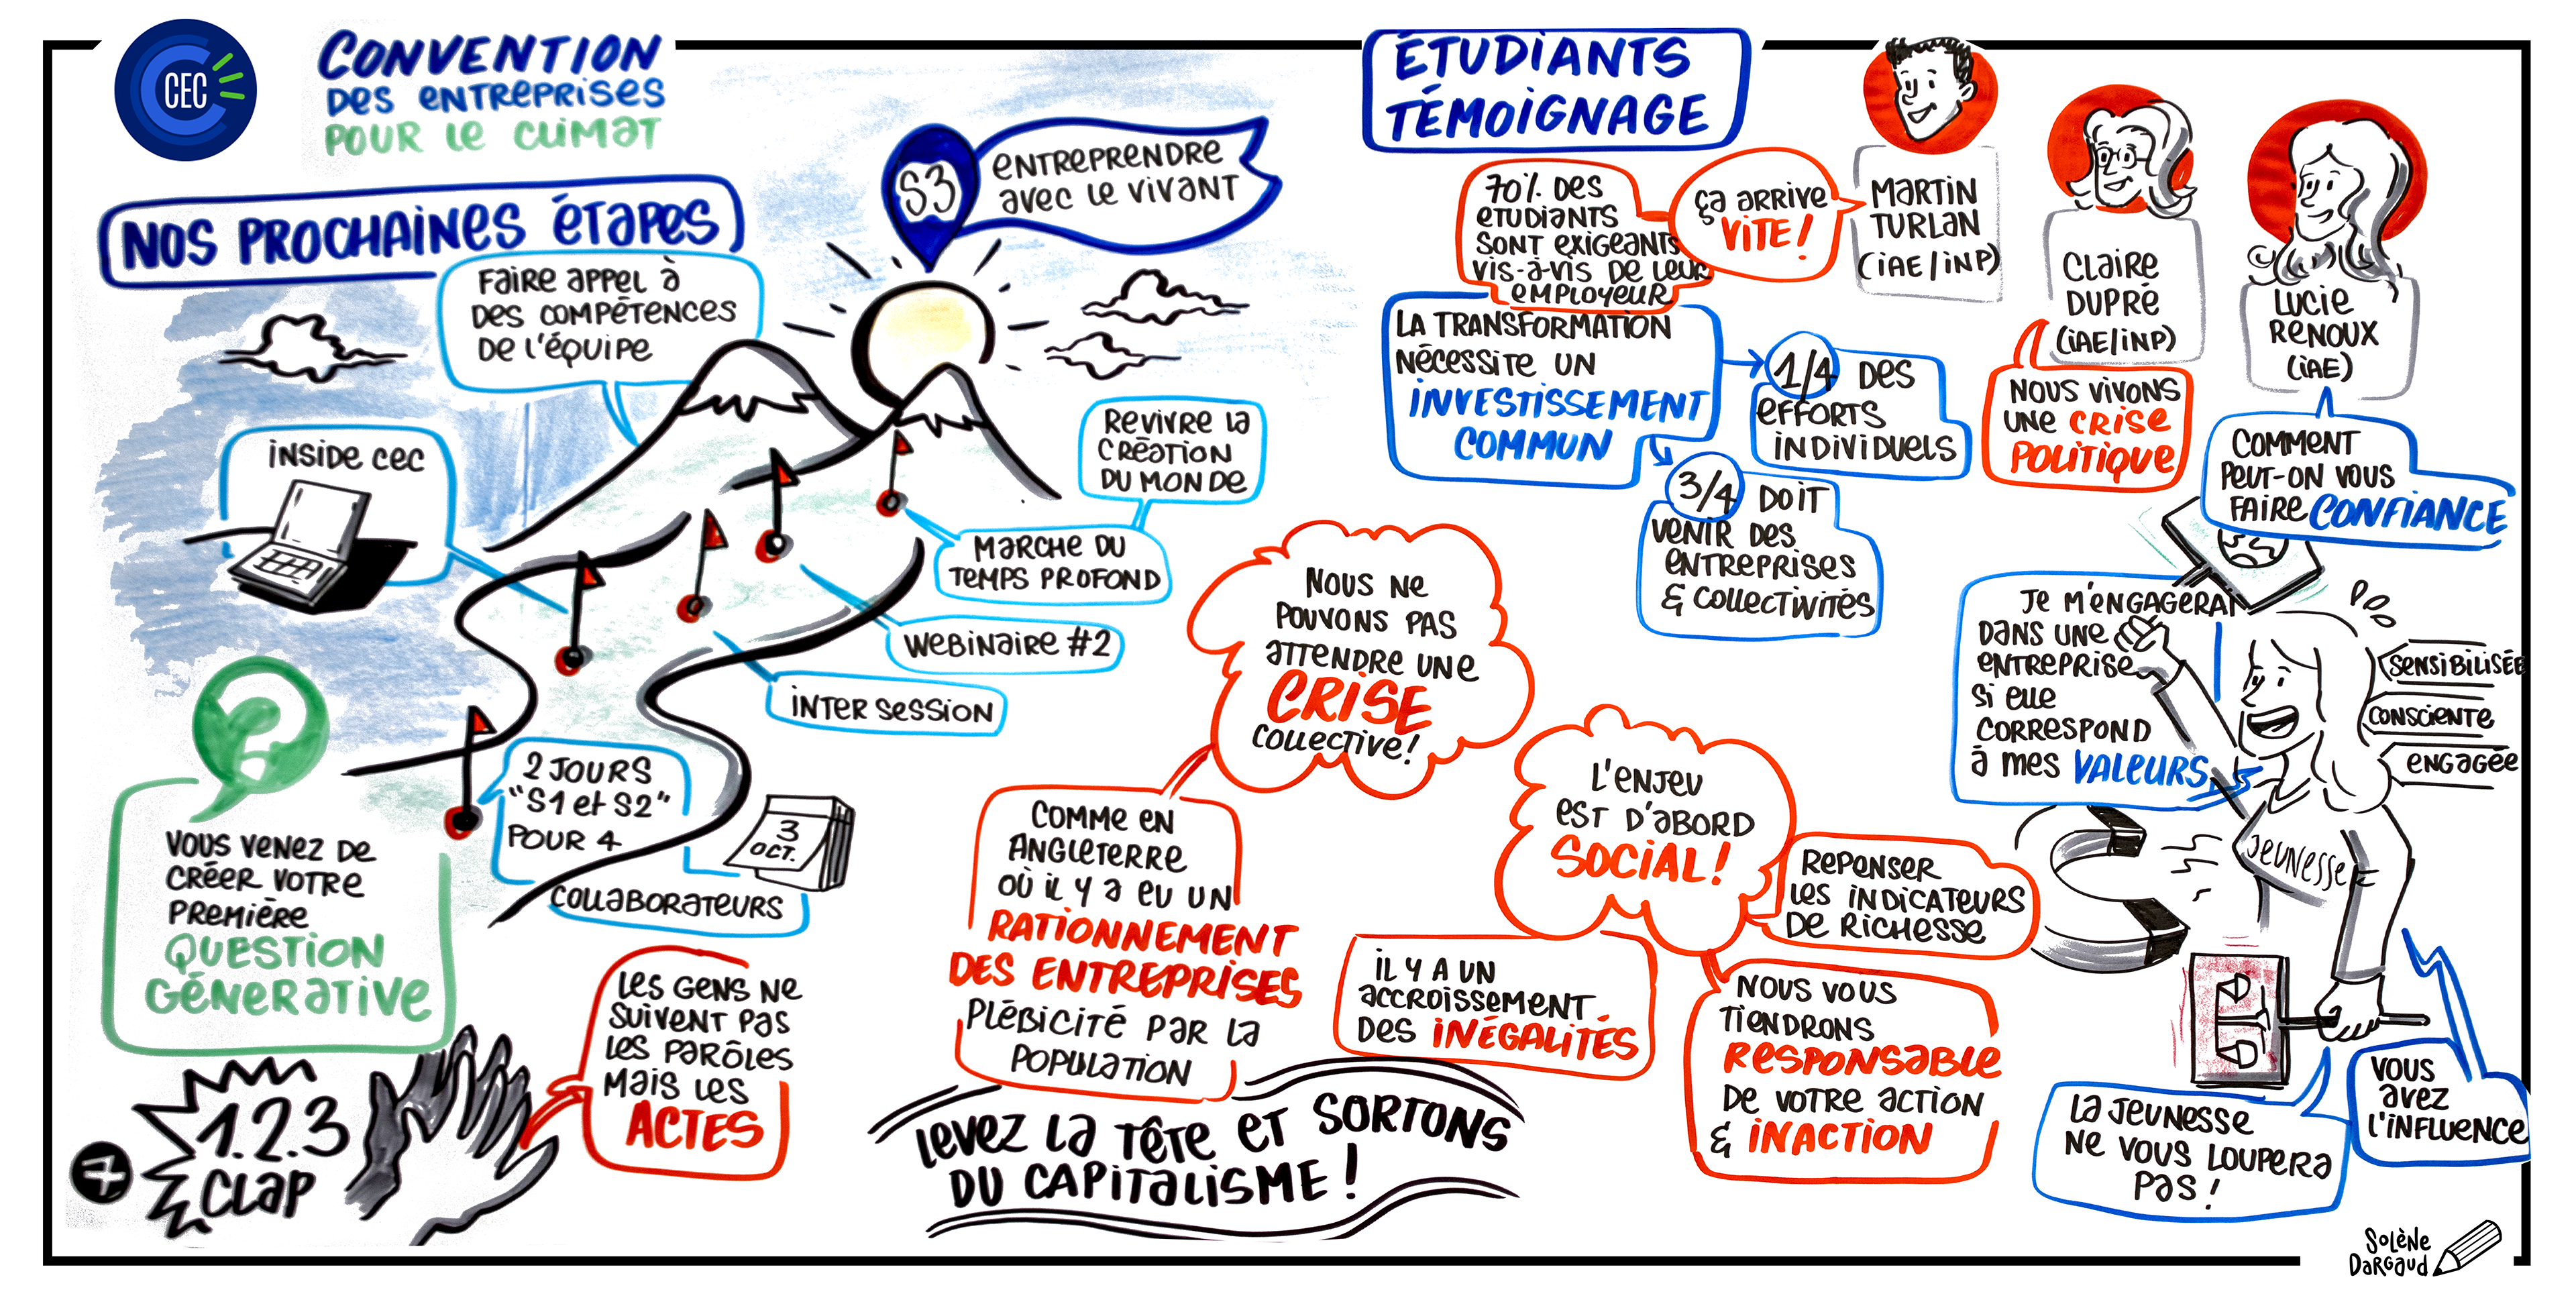 CEC
CONVENTION
DES ENTREPRISES
POUR LE CLIMAT
NOS PROCHAINES ÉTAPES
S3
ENTREPRENDRE
AVEC LE VIVANT
FAIRE APPEL À
DES COMPÉTENCES
DE L'ÉQUIPE
INSIDE CEC
REVIVRE LA
CRÉATION
DU MONDE
MARCHE DU
TEMPS PROFOND
WEBINAIRE #2
INTER SESSION
2 JOURS
"S1 et S2"
POUR 4
COLLABORATEURS
3
OCT.
?
VOUS VENEZ DE
CRÉER VOTRE
PREMIÈRE
QUESTION
GÉNERATIVE
+
1.2.3
CLAP
LES GENS NE
SUIVENT PAS
LES PARÔLES
MAIS LES
ACTES
ÉTUDIANTS
TÉMOIGNAGE
70% DES
ETUDIANTS
SONT EXIGEANTS
VIS-À-VIS DE LEUR
EMPLOYEUR
ÇA ARRIVE
VITE!
MARTIN
TURLAN
(IAE/INP)
CLAIRE
DUPRÉ
(IAE/INP)
LUCIE
RENOUX
(IAE)
LA TRANSFORMATION
NÉCESSITE UN
INVESTISSEMENT
COMMUN
1/4 DES
EFFORTS
INDIVIDUELS
3/4 DOIT
VENIR DES
ENTREPRISES
& COLLECTIVITÉS
NOUS VIVONS
UNE CRISE
POLITIQUE
COMMENT
PEUT-ON VOUS
FAIRE CONFIANCE
NOUS NE
POUVONS PAS
ATTENDRE UNE
CRISE
COLLECTIVE!
COMME EN
ANGLETERRE
OÙ IL Y A EU UN
RATIONNEMENT
DES ENTREPRISES
PLÉBICITÉ PAR LA
POPULATION
L'ENJEU
EST D'ABORD
SOCIAL!
REPENSER
LES INDICATEURS
DE RICHESSE
IL Y A UN
ACCROISSEMENT
DES INÉGALITÉS
NOUS VOUS
TIENDRONS
RESPONSABLE
DE VOTRE ACTION
& INACTION
LEVEZ LA TÊTE ET SORTONS
DU CAPITALISME!
JE M'ENGAGERAI
DANS UNE
ENTREPRISE
SI ELLE
CORRESPOND
À MES VALEURS
SENSIBILISÉE
CONSCIENTE
ENGAGÉE
JEUNESSE
LA JEUNESSE
NE VOUS LOUPERA
PAS!
VOUS
AVEZ
L'INFLUENCE
SOLÈNE
DARGAUD